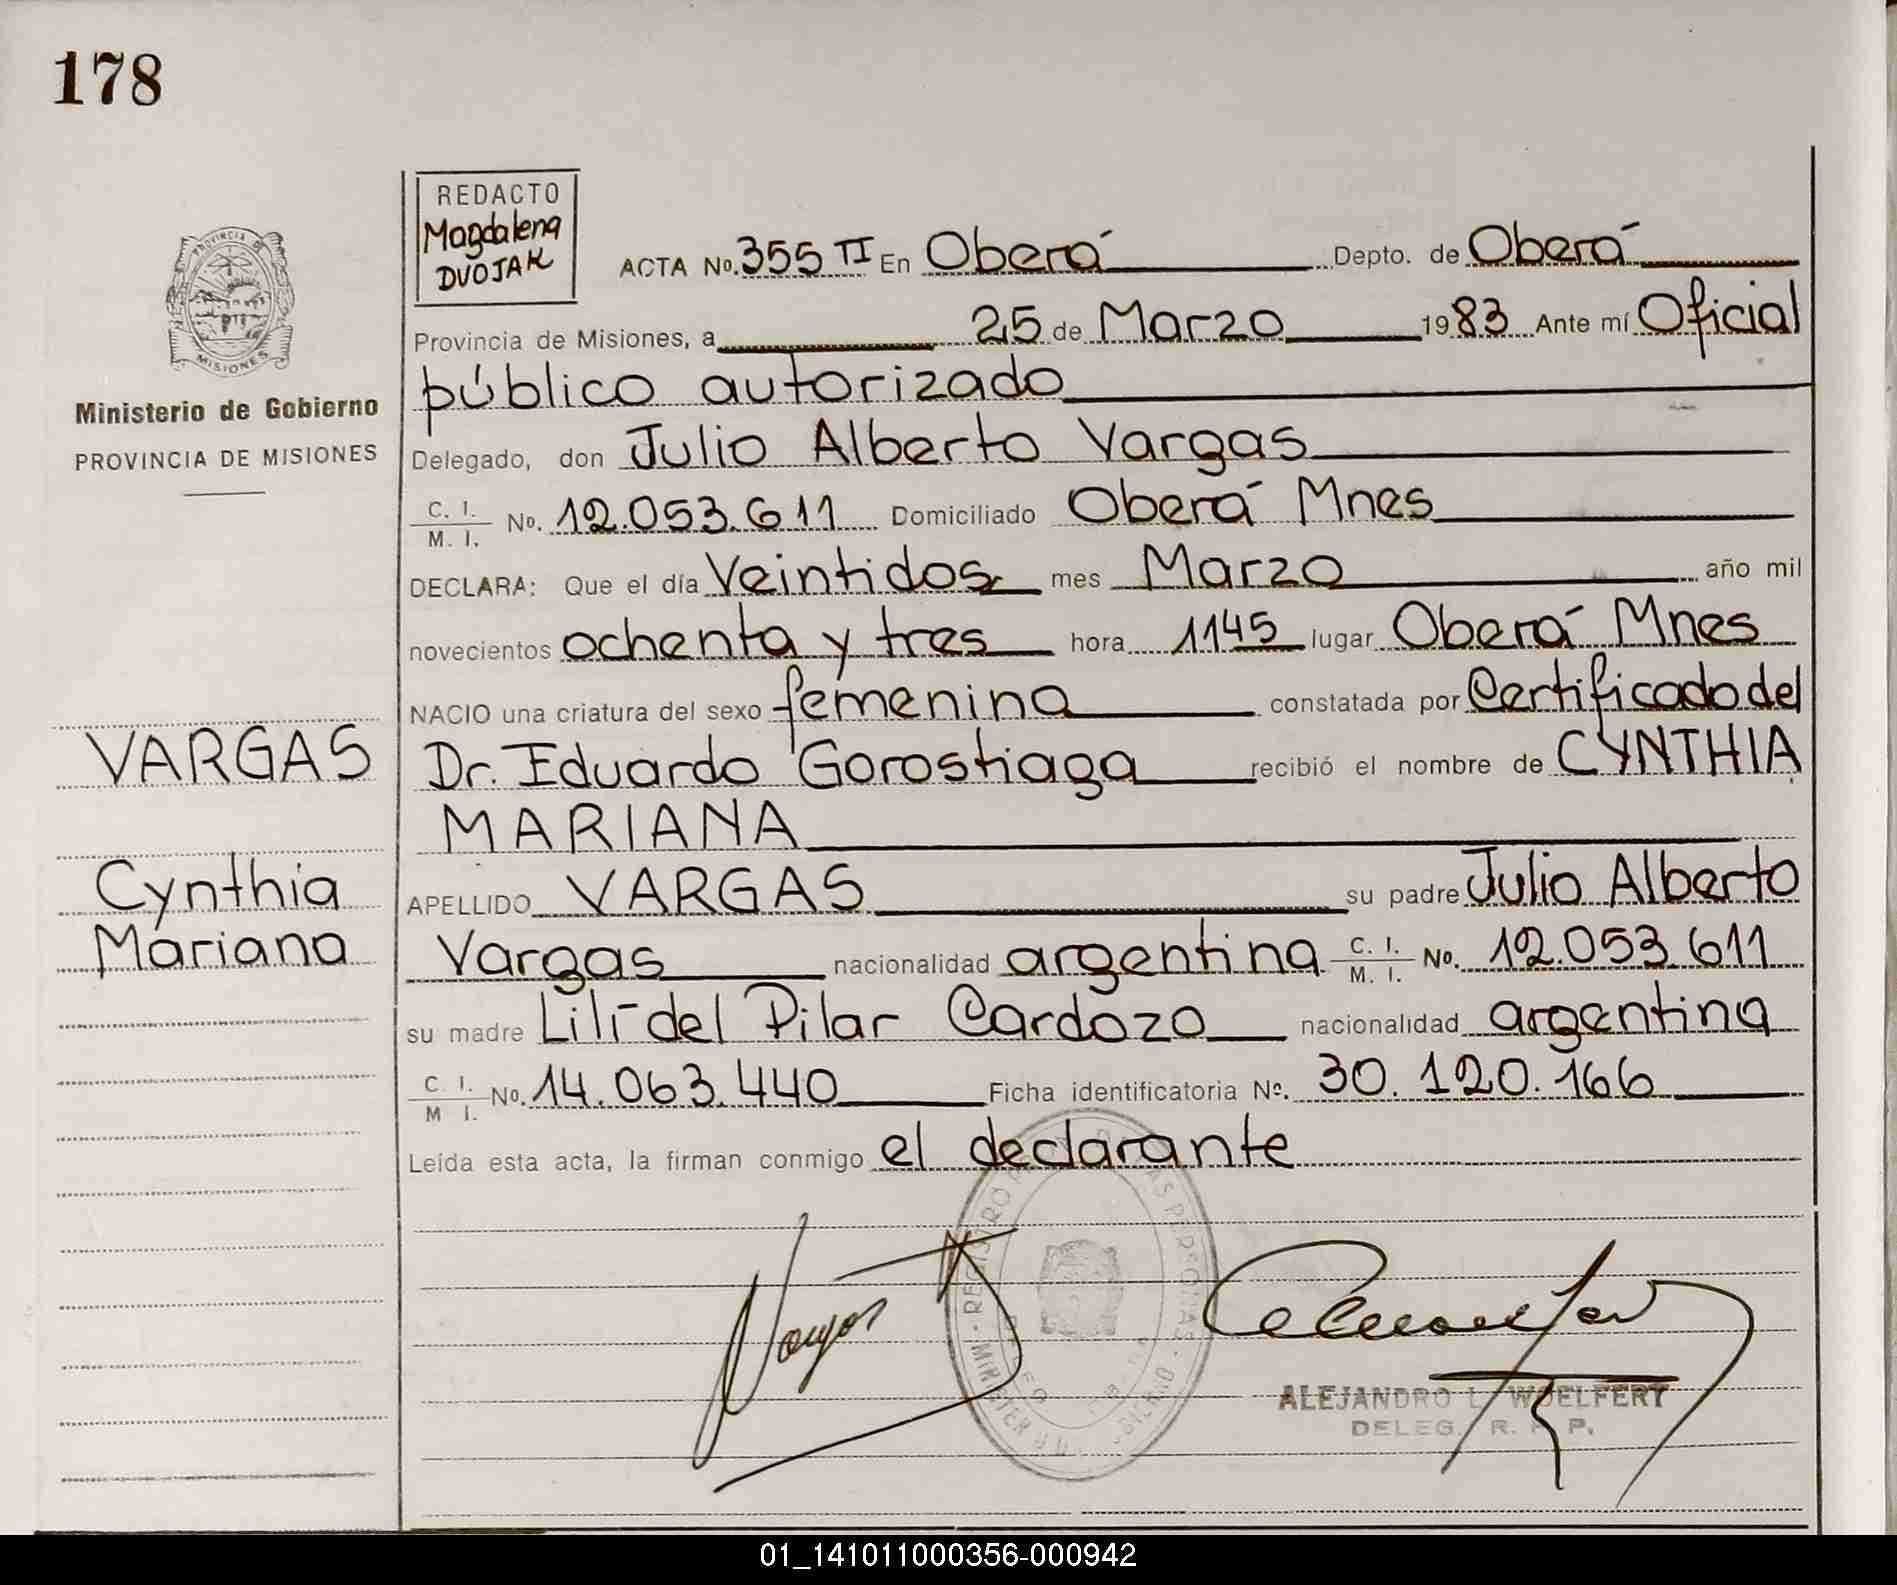 178
REDACTO
Magdalena
DVOJAK
ACTA No. 355 II En Oberá Depto. de Oberá
Provincia de Misiones, a 25 de Marzo 1983 Ante mí Oficial
público autorizado
Delegado, don Julio Alberto Vargas
C. I.
M. I. No. 12.053.611 Domiciliado Oberá Mnes
DECLARA: Que el día Veintidos mes Marzo año mil
novecientos ochenta y tres hora 1145 lugar Oberá Mnes
NACIO una criatura del sexo femenina constatada por Certificado del
Dr. Eduardo Gorostiaga recibió el nombre de CYNTHIA
MARIANA
APELLIDO VARGAS su padre Julio Alberto
Vargas nacionalidad argentina C. I. M. I. No. 12.053.611
su madre Lilí del Pilar Cardozo nacionalidad argentina
C. I.
M I. No. 14.063.440 Ficha identificatoria Nº. 30.120.166
Leída esta acta, la firman conmigo el declarante
PROVINCIA DE
MISIONES
Ministerio de Gobierno
PROVINCIA DE MISIONES
VARGAS
Cynthia
Mariana
Vargas
ALEJANDRO L. WOELFERT
DELEG. R. P. P.
01_141011000356-000942